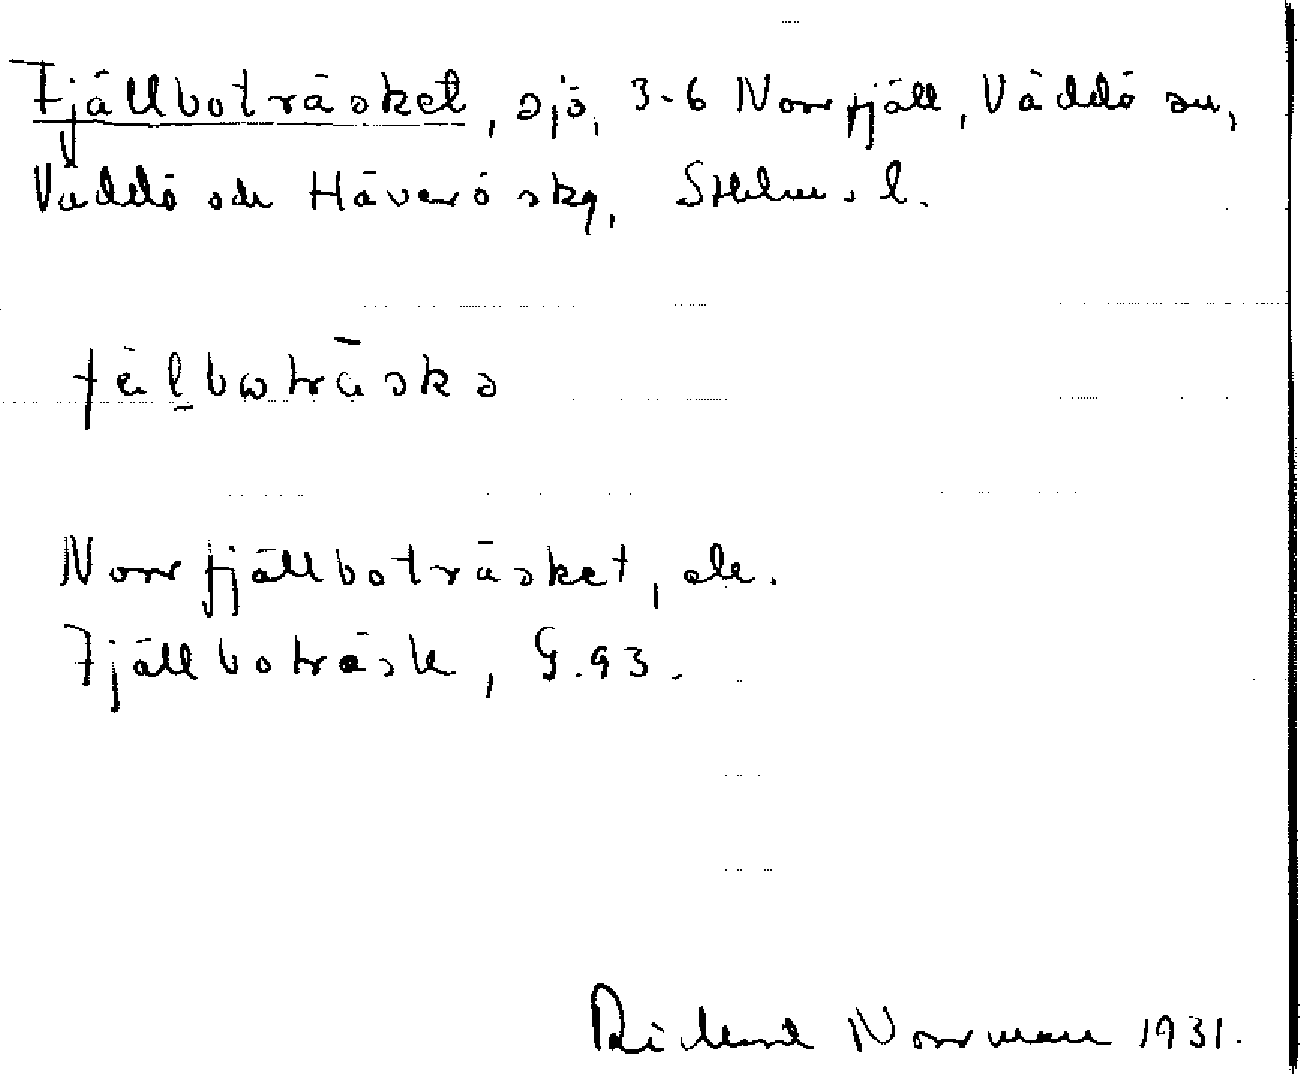 Fjällboträsket, sjö, 3-6 Norrfjäll, Väddö sn,
Väddö och Häverö skg, Sthlms l.
fälboträskə
Norrfjällboträsket, ek.
Fjällboträsk, G.93.
Rickard Norrman 1931.